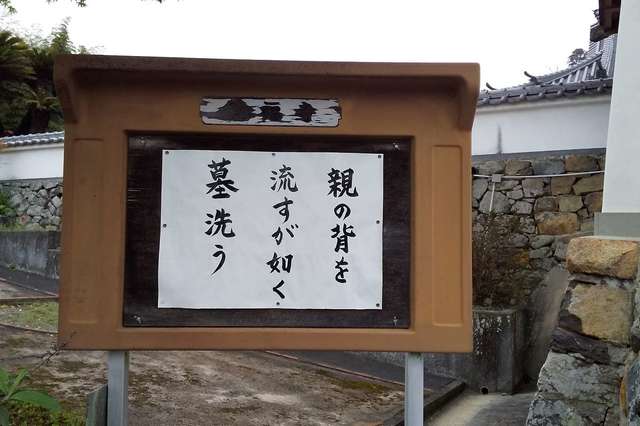 親の背を
流すが如く
墓洗う